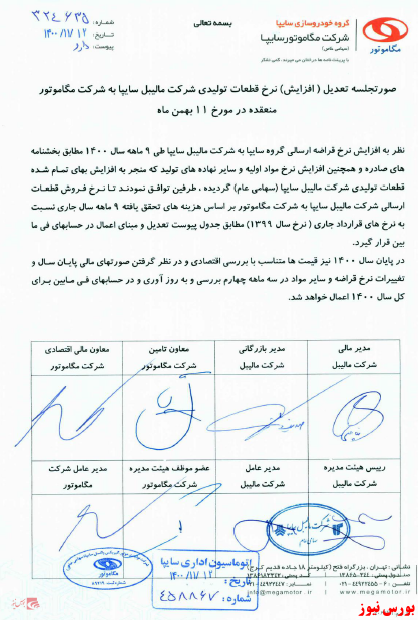 بسمه تعالی
گروه خودروسازی سایپا
شرکت مگاموتور سایپا
(سهامی خاص)
مگاموتور
شماره:
۳۲۴۶۳۵
تاریخ: ۱۴۰۰/۱۱/۱۲
پیوست: دارد
صورتجلسه تعدیل ( افزایش) نرخ قطعات تولیدی شرکت مالیبل سایپا به شرکت مگاموتور
منعقده در مورخ ۱۱ بهمن ماه
نظر به افزایش نرخ قراضه ارسالی گروه سایپا به شرکت مالیبل سایپا طی ۹ ماهه سال ۱۴۰۰ مطابق بخشنامه
های صادره و همچنین افزایش نرخ مواد اولیه و سایر نهاده های تولید که منجر به افزایش بهای تمام شده
قطعات تولیدی شرکت مالیبل سایپا (سهامی عام) گردیده ، طرفین توافق نمودند تا نرخ فروش قطعات
ارسالی شرکت مالیبل سایپا به شرکت مگاموتور بر اساس هزینه های تحقق یافته ۹ ماهه سال جاری نسبت
به نرخ های قرارداد جاری ( نرخ سال ۱۳۹۹) مطابق جدول پیوست تعدیل و مبنای اعمال در حسابهای فی ما
بین قرار گیرد.
در پایان سال ۱۴۰۰ نیز قیمت ها متناسب با بررسی اقتصادی و در نظر گرفتن صورتهای مالی پایان سال و
تغییرات نرخ قراضه و سایر مواد در سه ماهه چهارم بررسی و به روز آوری و در حسابهای فی مابین برای
کل سال ۱۴۰۰ اعمال خواهد شد.
مدیر مالی
شرکت مالیبل
مدیر بازرگانی
شرکت مالیبل
معاون تامین
شرکت مگاموتور
معاون مالی اقتصادی
شرکت مگاموتور
رییس هیئت مدیره
شرکت مالیبل
مدیر عامل
شرکت مالیبل
عضو موظف هیئت مدیره
شرکت مگاموتور
مدیر عامل شرکت
مگاموتور
شرکت مالیبل سایپا
سهامی عام
مگاموتور
اتوماسیون اداری سایپا
تاریخ: ۱۴۰۰/۱۱/۱۲
شماره: ۴۵۸۸۶۷
www.megamotor.ir
بورس نیوز